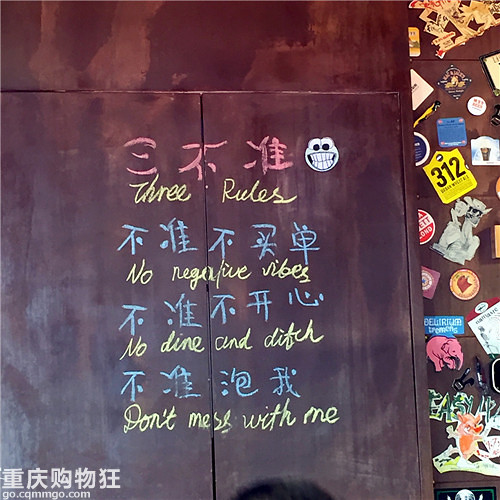 三不准
Three Rules
不准不买单
No negative vibes
不准不开心
No dine and ditch
不准泡我
Don't mess with me
312
DELIRIUM
tremens
重庆购物狂
go.cqmmgo.com